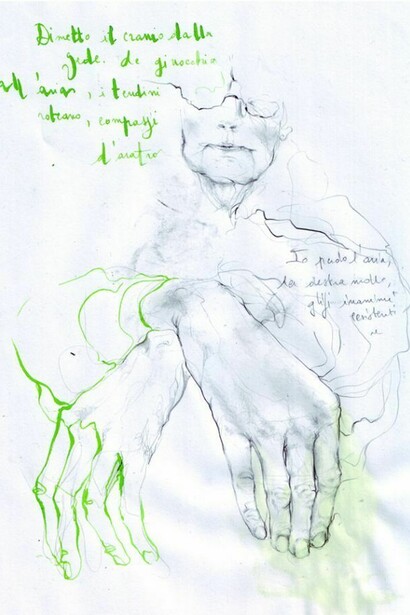 Dimetto il cranio dalla
sede. Le ginocchia
all'aria, i tendini
roteano, compassi
d'aratro
Io perdo l'aria,
la destra molle,
glifi inanimi